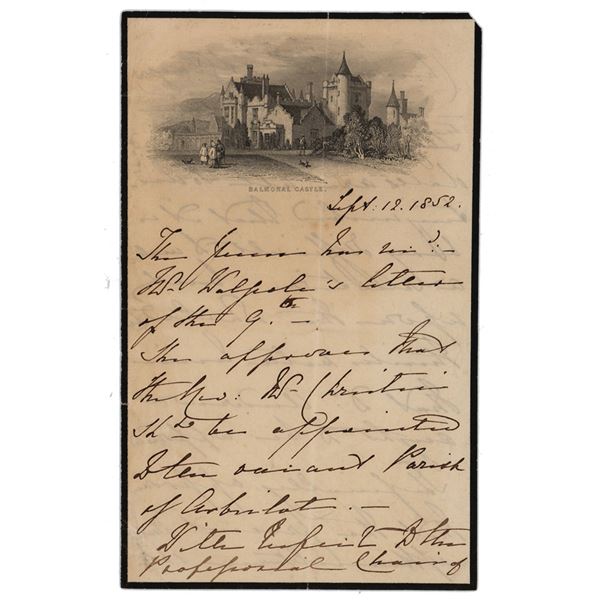 BALMORAL CASTLE.
Sept: 12. 1852.
The Queen has recd:-
Mr. Walpole's letter
of the 9th. –
She approves that
the Rev: Mr. Christie
shd be appointed
to the vacant Parish
of Arbirlot. –
With respect to the
Professorial Chair of